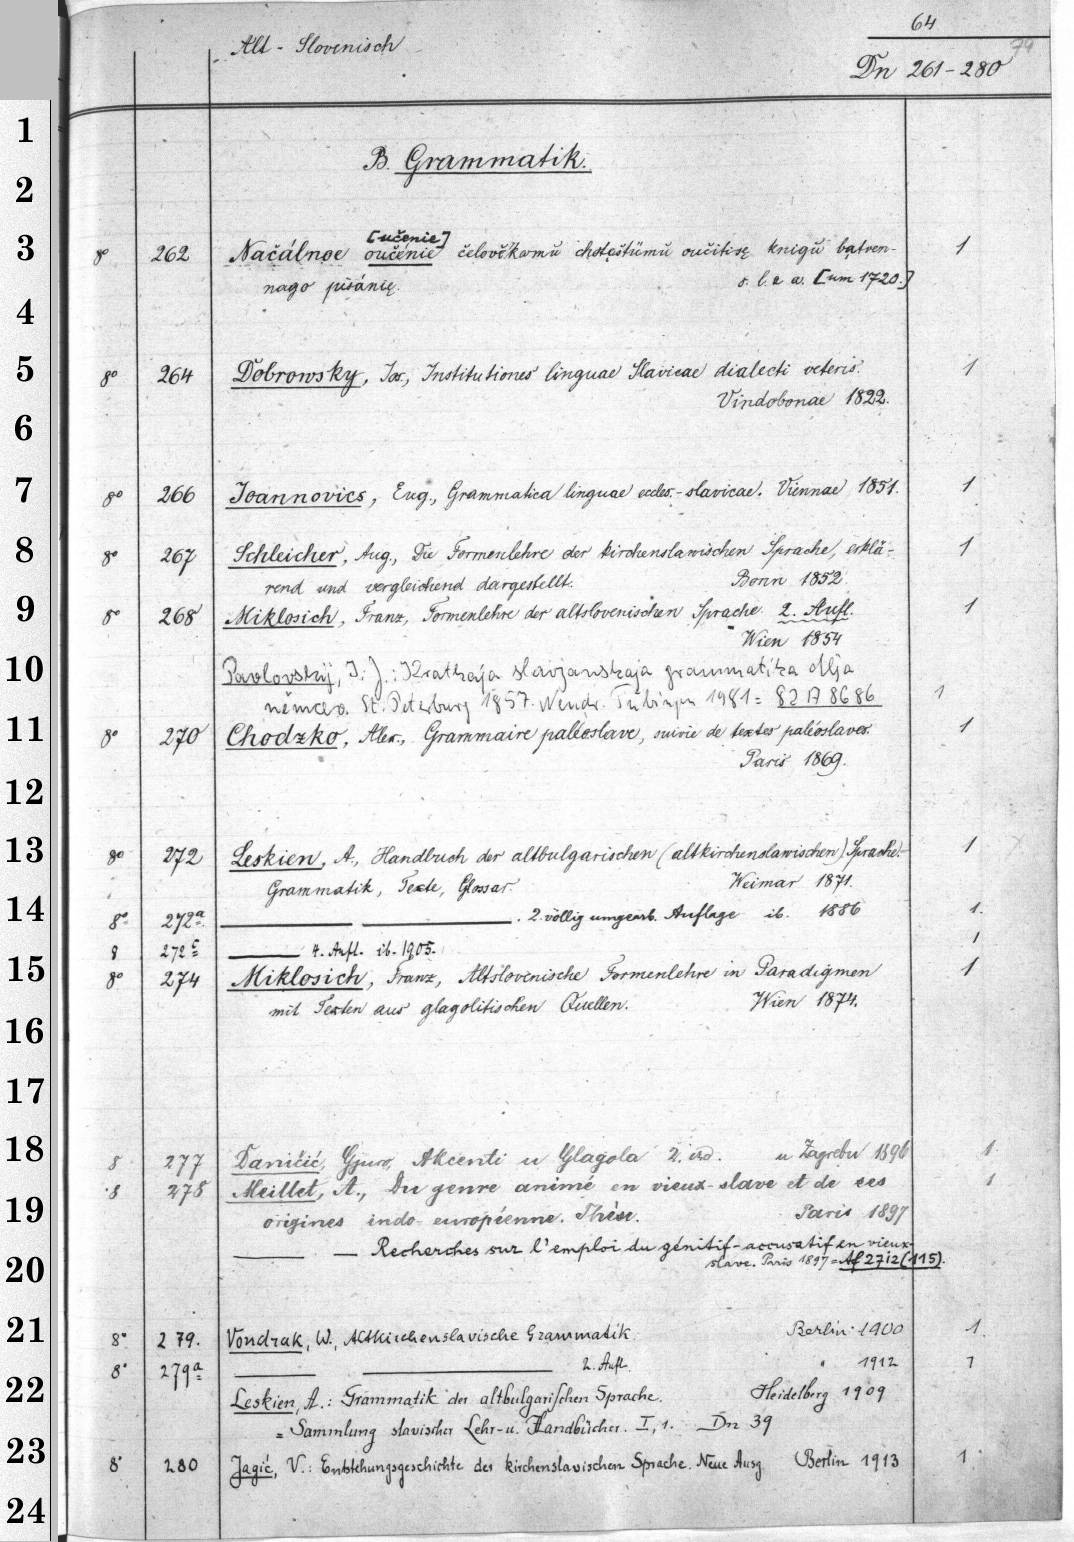 64
Alt-Slovenisch
79
Dn 261-280
1
B. Grammatik.
2
[učenie]
3 8° 262 Načálnoe oučénie čelověkomŭ chotęštümŭ oučitisę knigŭ bątven- 1
nago pisánię. s. l. e a. [um 1720.]
4
5 8° 264 Dobrowsky, Jos., Institutiones linguae Slavicae dialecti veteris. 1
Vindobonae 1822.
6
7 8° 266 Joannovics, Eug., Grammatica linguae eccles.-slavicae. Viennae 1851. 1
8 8° 267 Schleicher, Aug., Die Formenlehre der kirchenslawischen Sprache, erklä- 1
rend und vergleichend dargestellt. Bonn 1852.
9 8° 268 Miklosich, Franz, Formenlehre der altslovenischen Sprache. 2. Aufl. 1
Wien 1854
10 Pavlovskij, I. J.: Kratkaja slavjanskaja grammatika dlja
němcev. St. Peterburg 1857. Neudr. Tübingen 1981 = 82 A 8686 1
11 8° 270 Chodzko, Alex., Grammaire paléoslave, suivie de textes paléoslaves. 1
Paris 1869.
12
13 8° 272 Leskien, A., Handbuch der altbulgarischen (altkirchenslawischen) Sprache.- 1
Grammatik, Texte, Glossar. Weimar 1871.
14 8° 272a. . 2. völlig umgearb. Auflage ib. 1886 1.
8 272c 4. Aufl. ib. 1905. 1
15 8° 274 Miklosich, Franz, Altslovenische Formenlehre in Paradigmen 1
mit Texten aus glagolitischen Quellen. Wien 1874.
16
17
18 8 277 Daničić, Gjuro, Akcenti u Glagola 2. izd. u Zagrebu 1896 1
8 278 Meillet, A., Du genre animé en vieux-slave et de ses 1
19 origines indo-européenne. Thèse. Paris 1897
— Recherches sur l'emploi du génitif-accusatif en vieux-
20 slave. Paris 1897 = Af 2712 (115).
21 8° 279. Vondrak, W., Altkirchenslavische Grammatik Berlin 1900 1
8° 279a 2. Aufl. " 1912 1
22 Leskien, A.: Grammatik der altbulgarischen Sprache. Heidelberg 1909
= Sammlung slavischer Lehr- u. Handbücher. I, 1. Dn 39
23 8° 280 Jagić, V.: Entstehungsgeschichte der kirchenslavischen Sprache. Neue Ausg. Berlin 1913 1
24